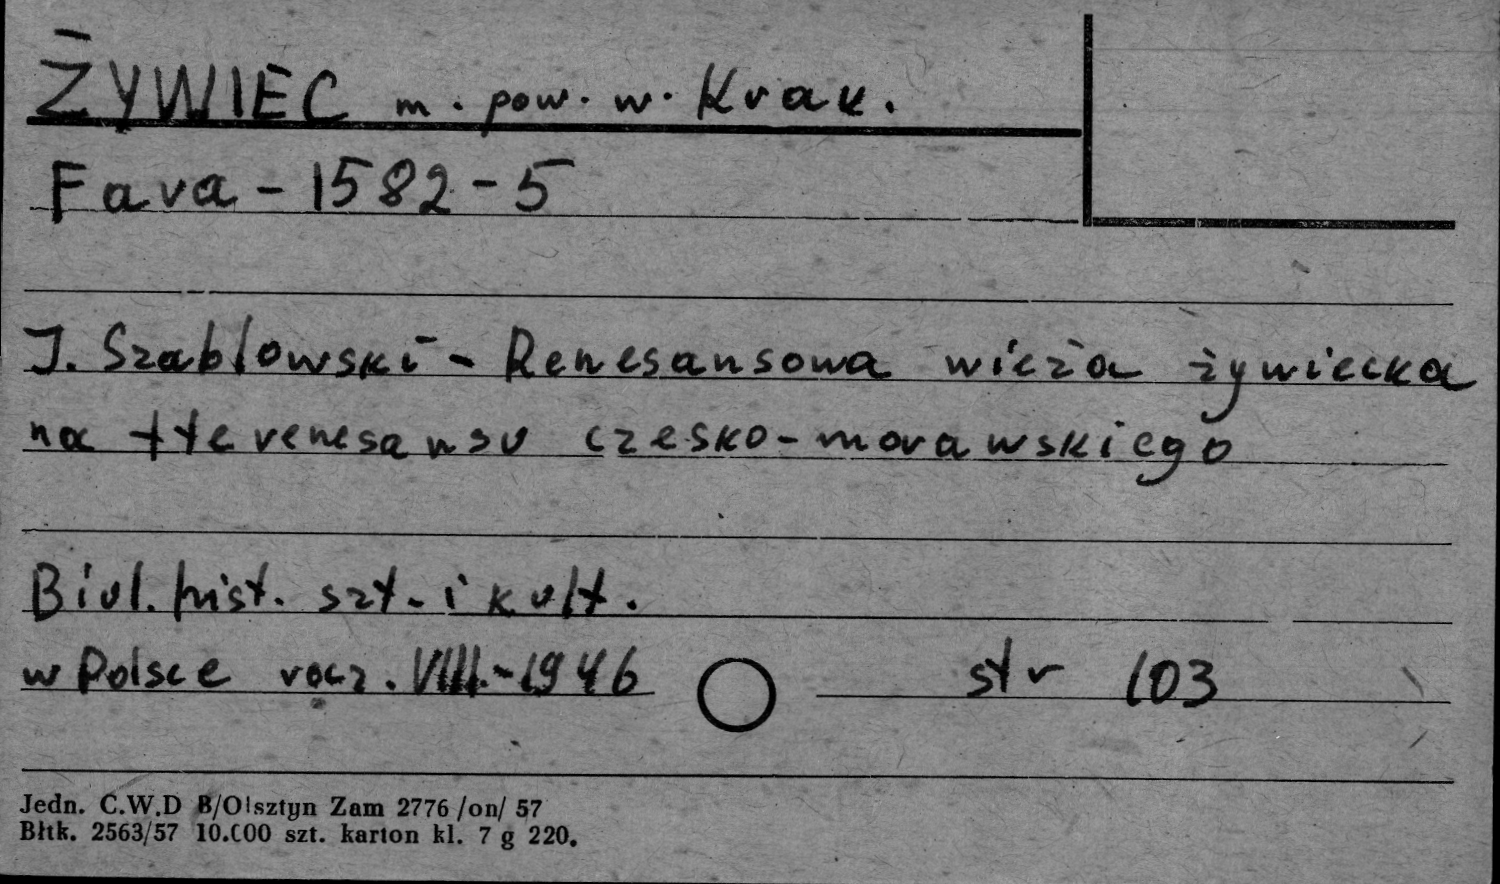 ŻYWIEC m. pow. w. Krak.
Fara - 1582-5
J. Szablowski - Renesansowa wieża żywiecka
na tle renesansu czesko-morawskiego
Biul. hist. szt. i kult.
w Polsce rocz. VIII.-1946 str 103
Jedn. C.W.D B/Olsztyn Zam 2776 /on/ 57
Błtk. 2563/57 10.000 szt. karton kl. 7 g 220.